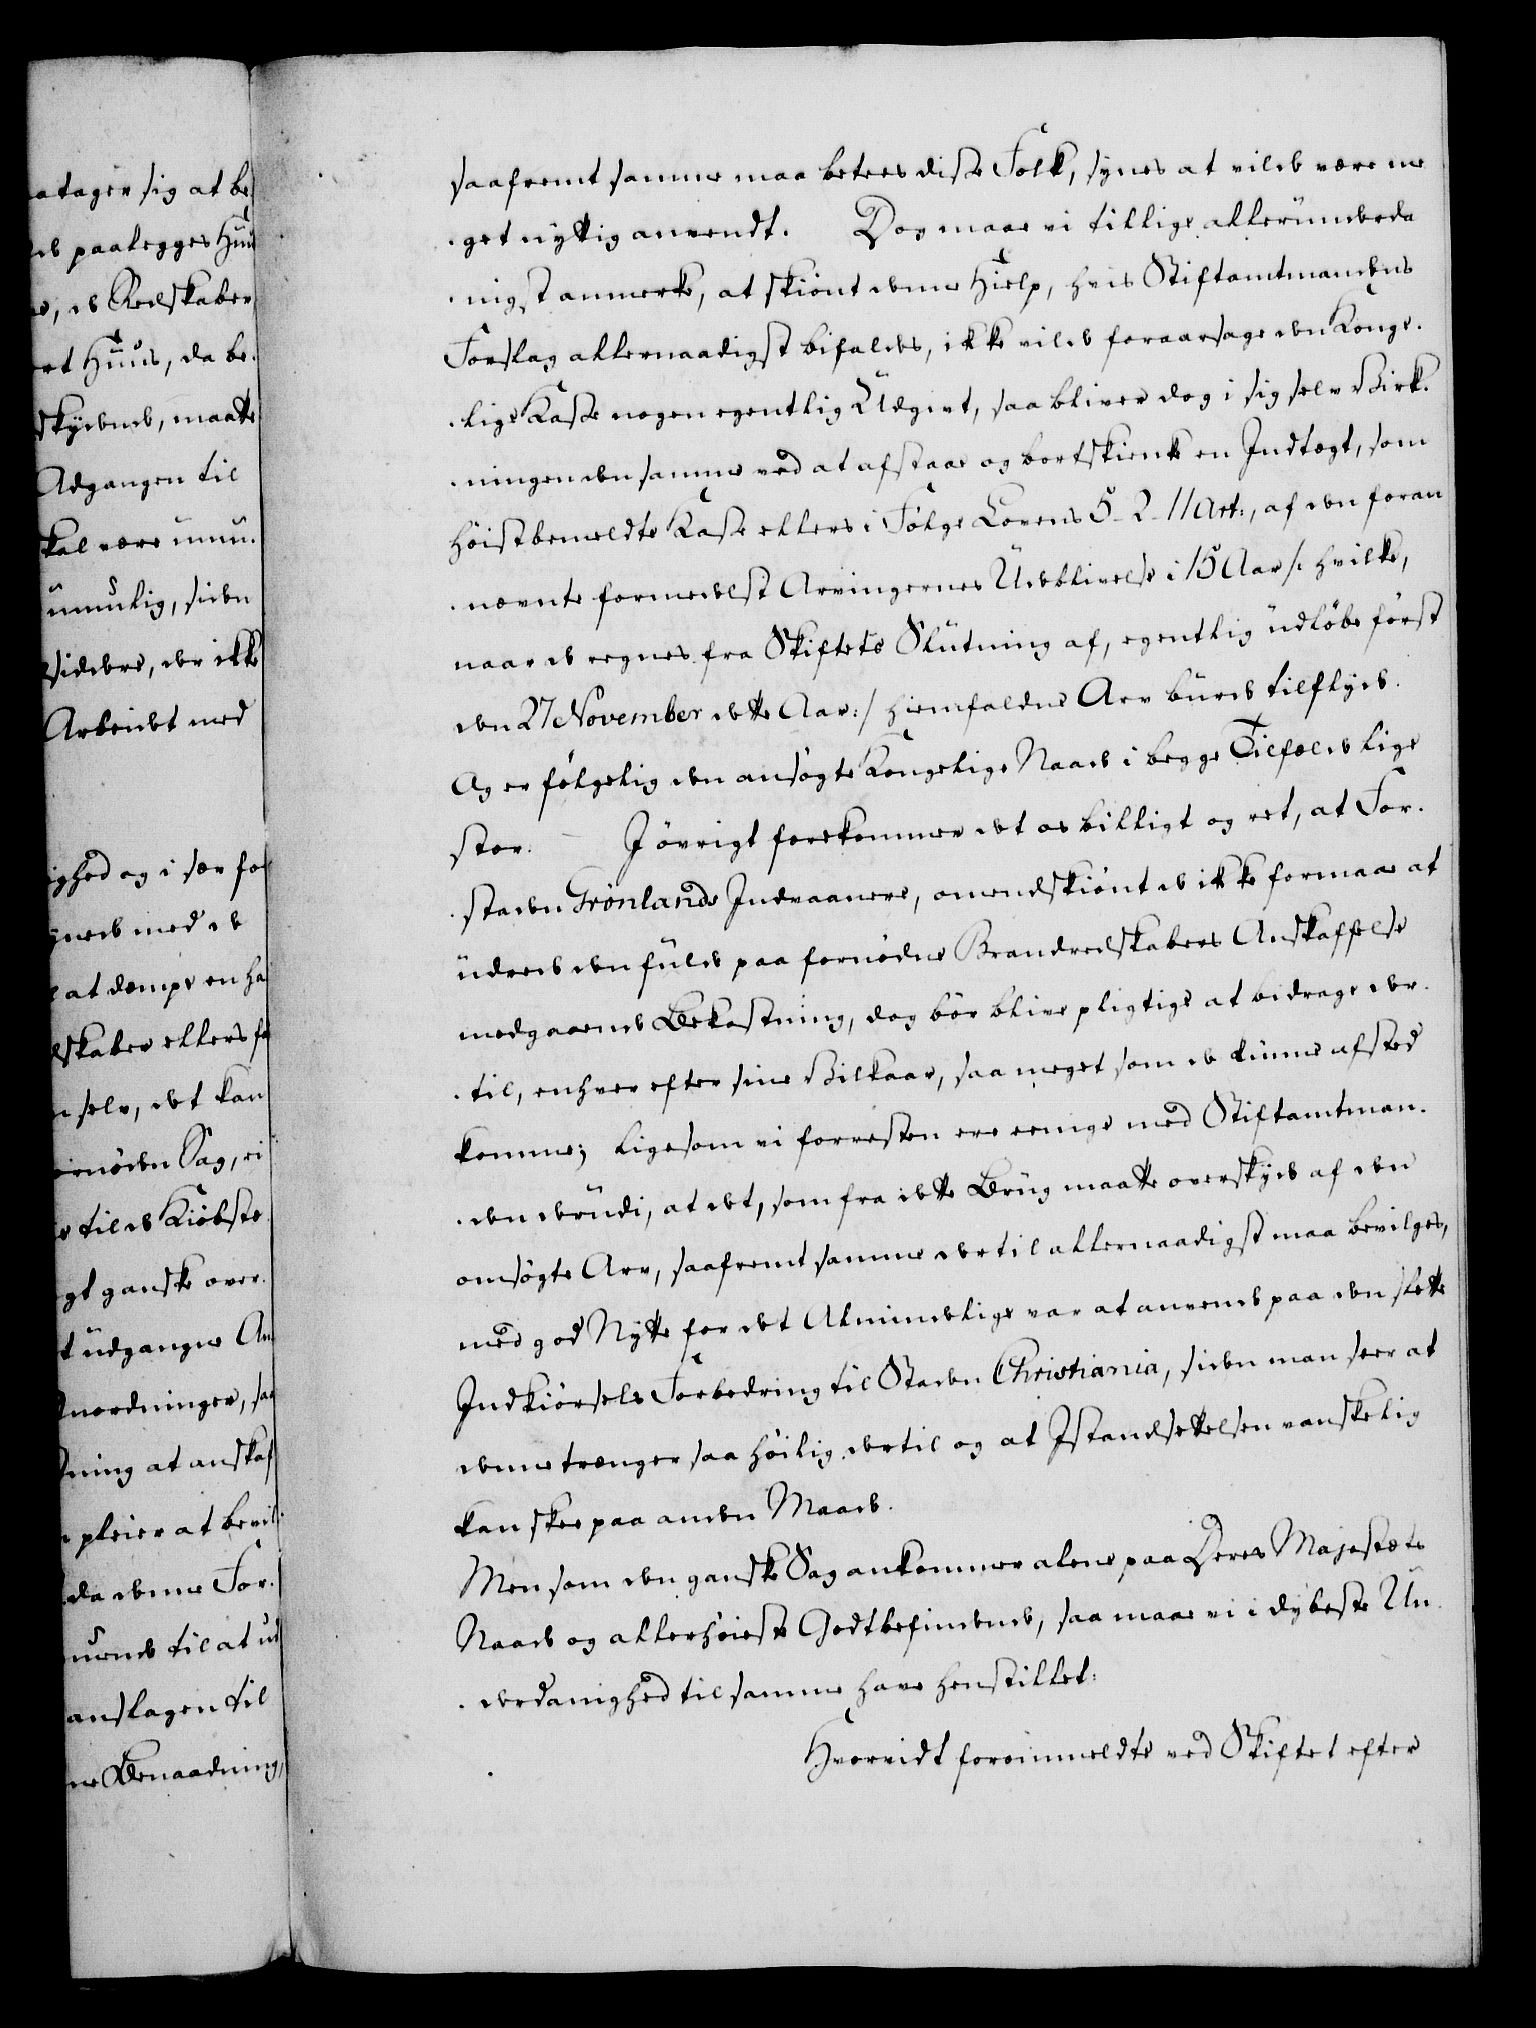 atager sig at be
de paalegges Huus
, de Redskaber
rt Huus, da be.
skydende, maatte
Adgangen til
kal være umu.
umulig, siden
sidere, der ikke
Arbeidet med
ighed og i sær fo
ynede med de
at dempe en ha
dskaber ellers fo
selv, det kan
ornøden Sag, ei
til de Kiøbstæ
gt ganske over.
t udgangne An
nordninger, saa
ning at anskaf
pleier at bevil
da denne For.
uende til at ud
anslagen til
ne Benaadning,
saafremt samme maa beteees disse Folk, synes at vilde være me
get nyttig anvendt. Dog maae vi tillige allerunderda
nigst anmerke, at skiønt denne Hielp, hvis Stiftamtmandens
Forslag allernaadigst bifaldes, ikke vilde foraarsage den Konge.
lige Kasse nogen egentlig Udgivt, saa bliver dog i sig selv Virk.
ningen den samme ved at afstaae og bortskienke en Indtægt, som
høistbemeldte Kasse ellers i Følge Lovens 5-2-11 Art:, af den foran
nævnte formedelst Arvingernes Udeblivelse i 15 Aar /: hvilke,
naar de regnes fra Skiftets Slutning af, egentlig udløbe først
den 27 November dette Aar :/ hiemfaldne Arv burde tilflyde.
Og er følgelig den ansøgte Kongelige Naade i begge Tilfælde lige
stor. I øvrigt forekommer det os billigt og ret, at For.
staden Grönlands Indvaanere, omendskiønt de ikke formaae at
udrede den fulde paa fornødne Brandredskabers Anskaffelse
medgaaende Bekostning, dog bør blive pligtige at bidrage der.
til, enhver efter sine Vilkaar, saa meget som de kunne afsted
komme; ligesom vi forresten ere eenige med Stiftamtman.
den derudi, at det, som fra dette Brug maatte overskyde af den
omsøgte Arv, saafremt samme dertil allernaadigst maa bevilges,
med god Nytte for det Almindelige var at anvende paa den slette
Indkiørsels Forbedring til Staden Christiania, siden man seer at
denne trænger saa høilig dertil og at Istandsettelsen vanskelig
kan skee paa anden Maade.
Men som den ganske Sag ankommer alene paa Deres Majestæts
Naade og allerhøieste Godtbefindende, saa maae vi i dybeste Un
derdanighed til samme have henstillet:
Hvorvidt foromeldte ved Skiftet efter